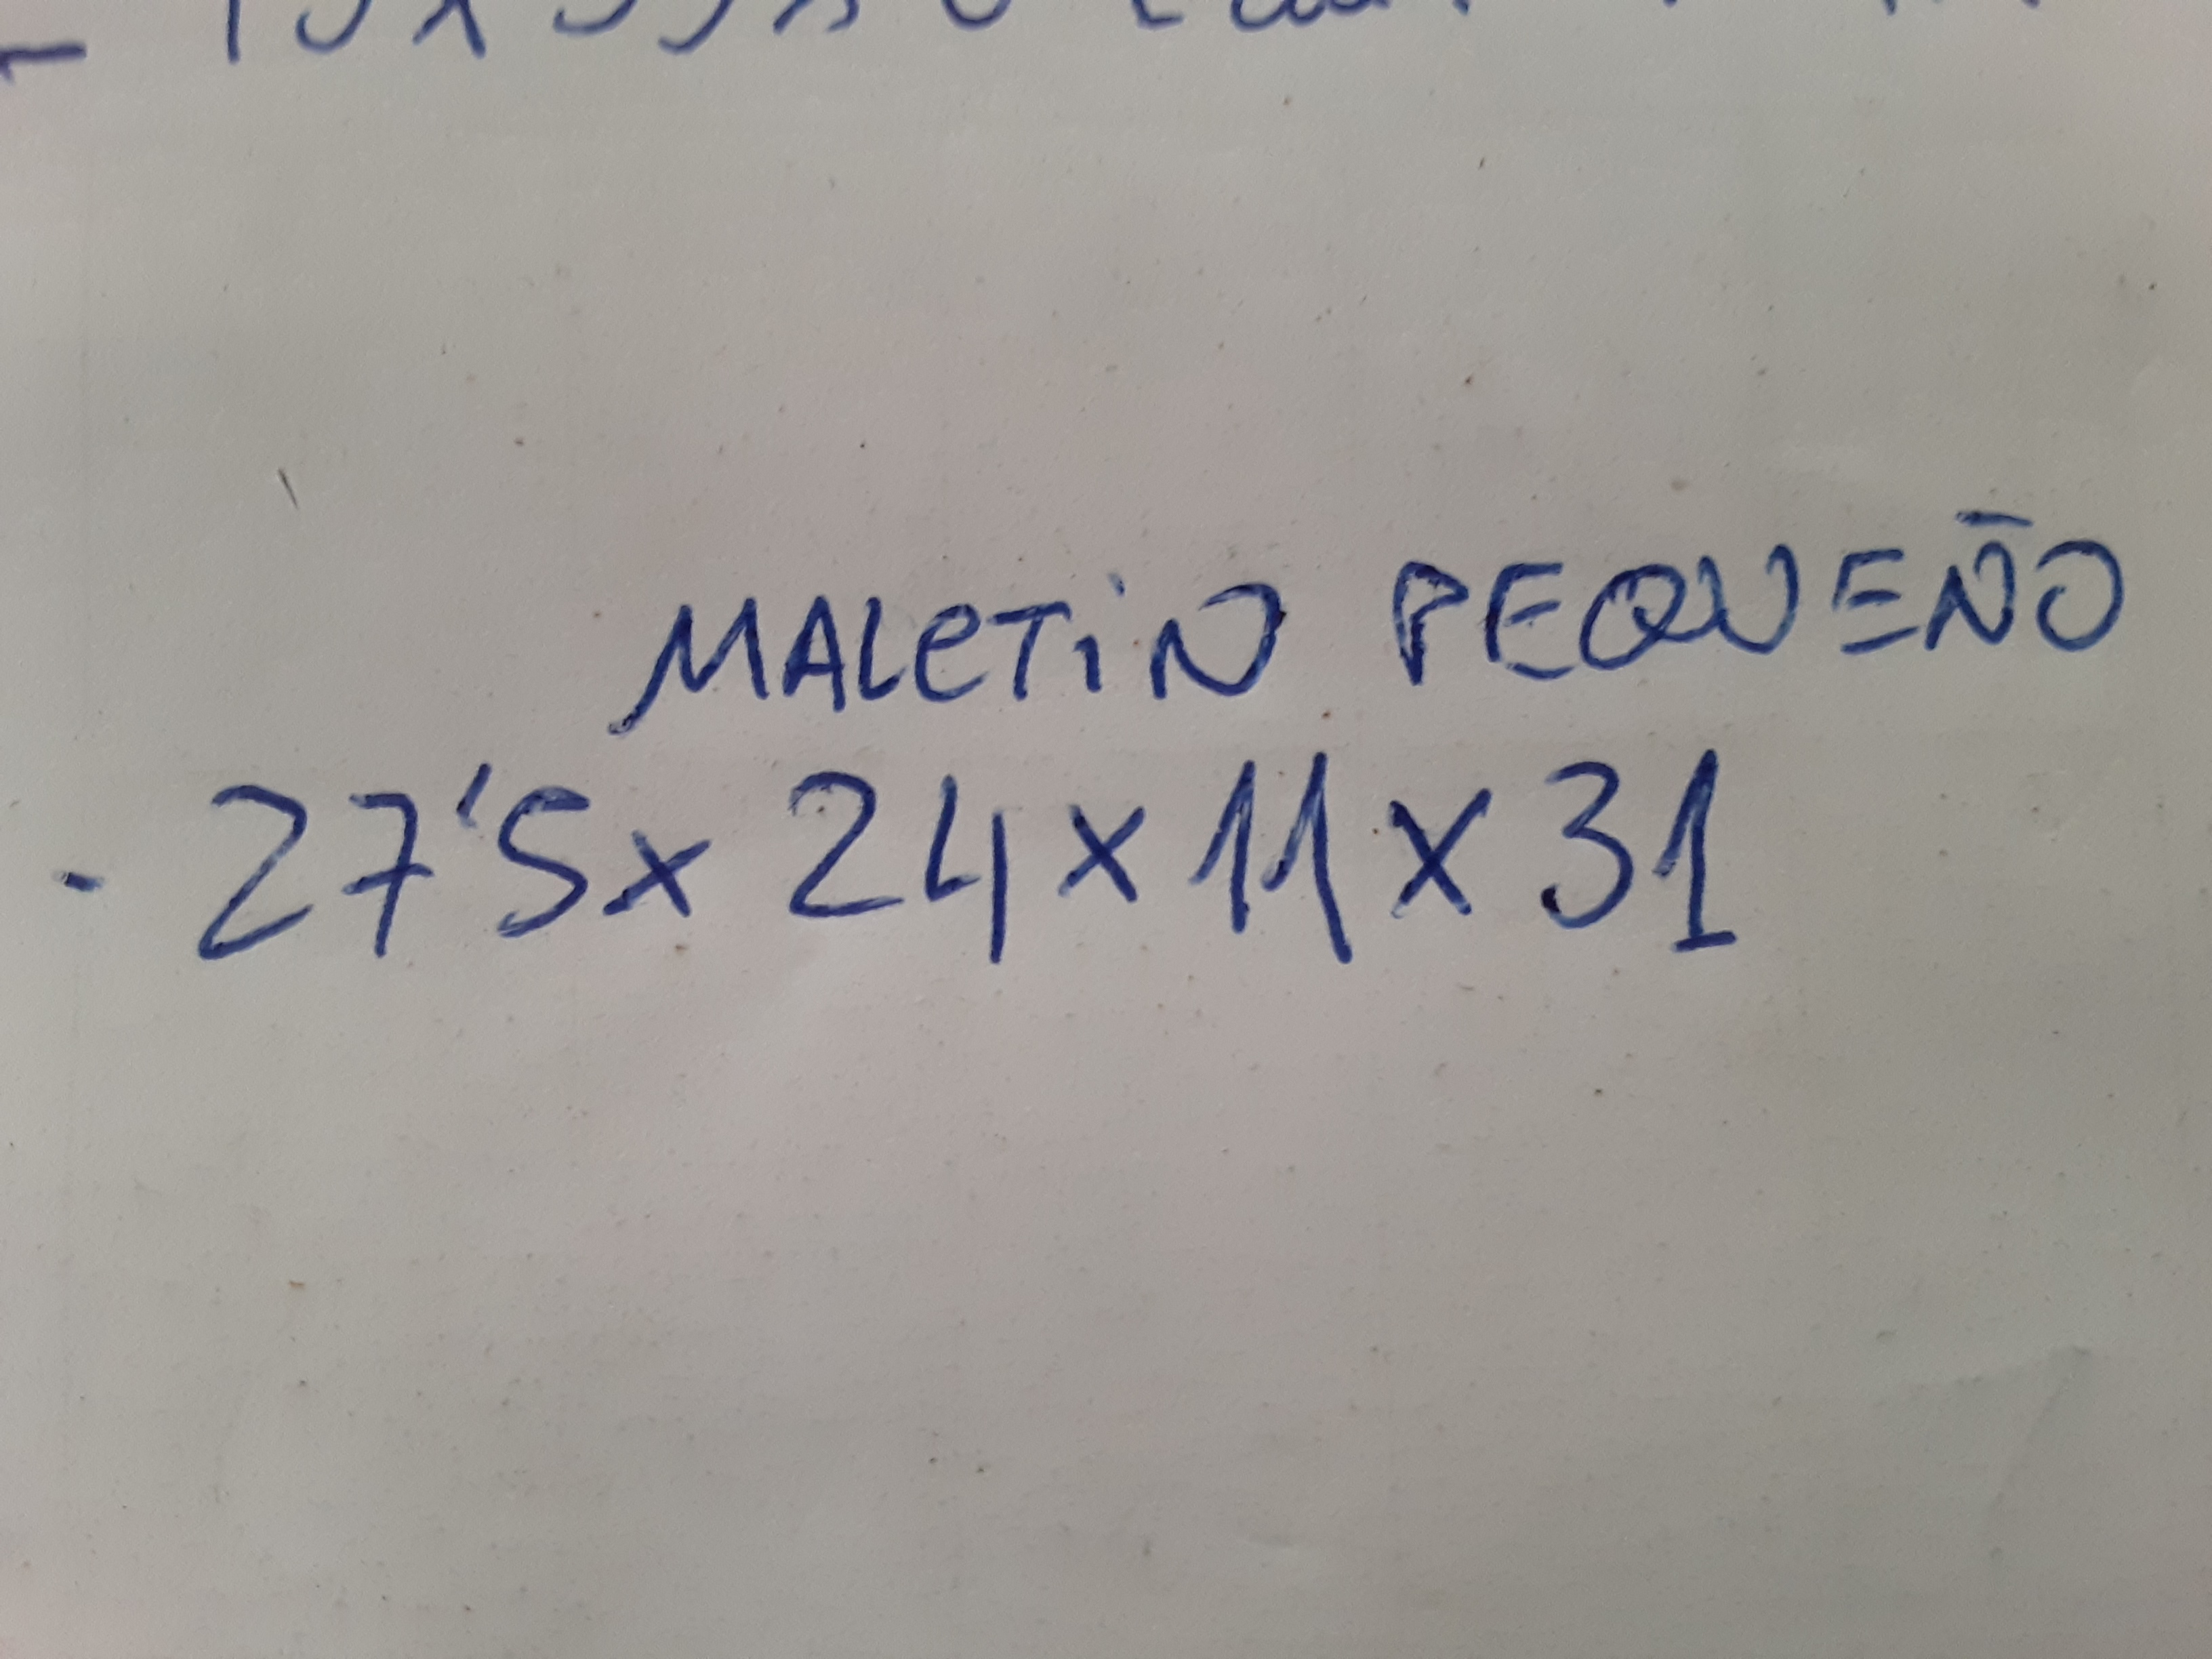 MALETIN PEQUEÑO
- 27'5x 24x11x31